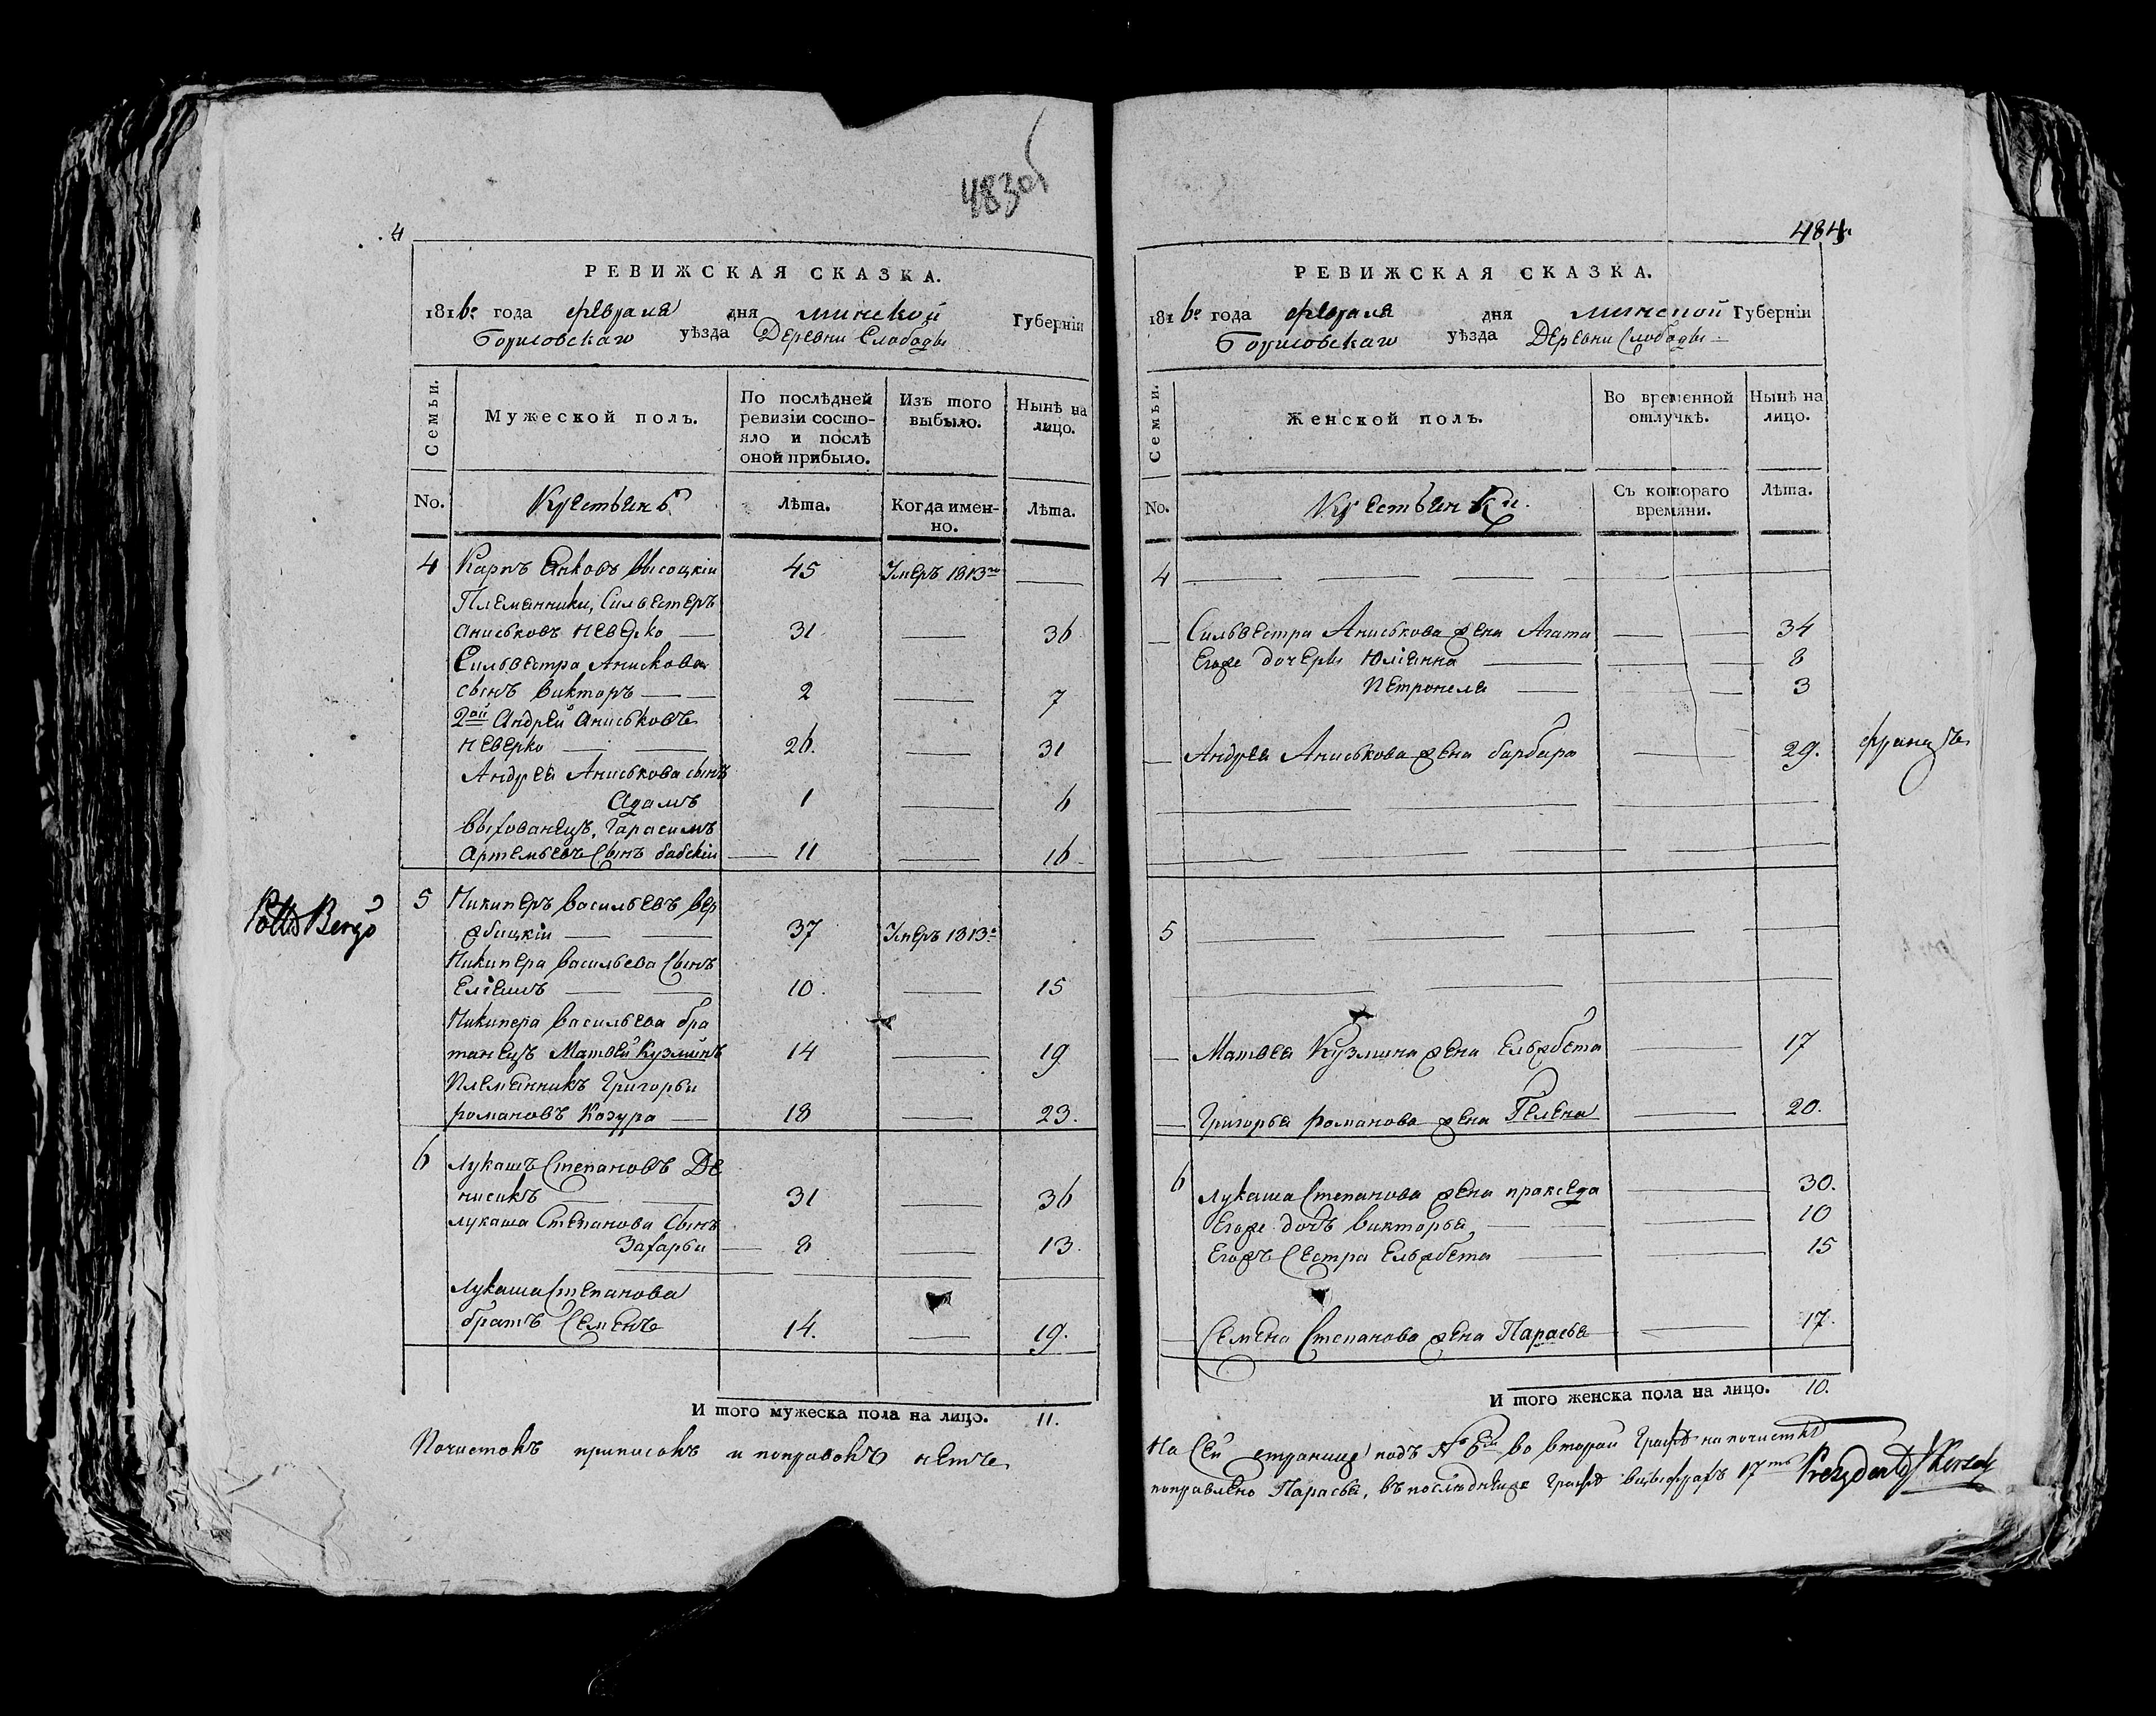 483об
4
РЕВИЖСКАЯ СКАЗКА.
1816го года февраля дня минской Губерніи
Борисовскаго уѣзда Деревни Слободы
Семьи.
Мужеской полъ.
По послѣдней ревизіи состо-
яло и послѣ оной прибыло.
Изъ того выбыло.
Нынѣ на лицо.
No.
Крестьянъ
Лѣта.
Когда имен-
но.
Лѣта.
4 Карпъ Янковъ высоцкіи 45 Умеръ 1813го
Племянники, Сильвестеръ
аниськовъ неверко 31 36
Сильвестра Анискова
сынъ викторъ 2 7
2ой Андрей аниськовъ
неверко 26. 31
Андрея Аниськова сынъ
Адамъ 1 6
выхованецъ, Гарасимъ
Артемьевъ Сынъ бабскіи 11 16
5 Никиперъ васильевъ вер
жбицкіи 37 Умеръ 1813го
Никипера васильева Сынъ
Еліяшъ 10. 15
Никипера васильева бра
танецъ Матвей Кузминъ 14 19
Племянникъ Григорьи
романовъ Козура 18 23.
6 Лукашъ Степановъ Де
нисикъ 31 36
лукаша Степанова Сынъ
Захарьи 8 13.
Лукаша Степанова
братъ Семенъ 14. 19.
И того мужеска пола на лицо. 11.
Почистокъ приписокъ и поправокъ нетъ
484
РЕВИЖСКАЯ СКАЗКА.
1816го года февраля дня минской Губерніи
Борисовскаго уѣзда Деревни Слободы
Семьи.
Женской полъ.
Во временной отлучкѣ.
Нынѣ на лицо.
No.
Крестьянки.
Съ котораго времяни.
Лѣта.
4
Сильвестра Аниськова жена Агата 34
Егоже дочеры Юліянна 8
Петронеля 3
Андрея Аниськова жена барбара 29.
5
Матвея Кузмина жена Ельжбета 17
Григорья романова жена Гелена 20.
6 Лукаша Степанова жена пракседа 30.
Егоже дочъ викторья 10
Егожъ Сестра Ельжбета 15
Семена Степанова жена Парасья 17.
И того женска пола на лицо. 10.
На Сей странице подъ № 6м во второй Графе на почистке
поправлено Парасья, въ последнейже графе 17ть Prezydent